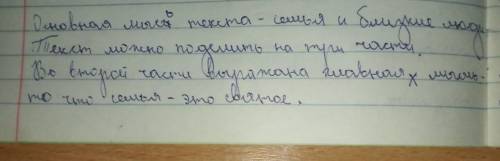 Основная мысь текста - семья и близкие люди
Текст можно поделить на три части.
Во второй части выражана главная мысль -
то что семья - это святое.